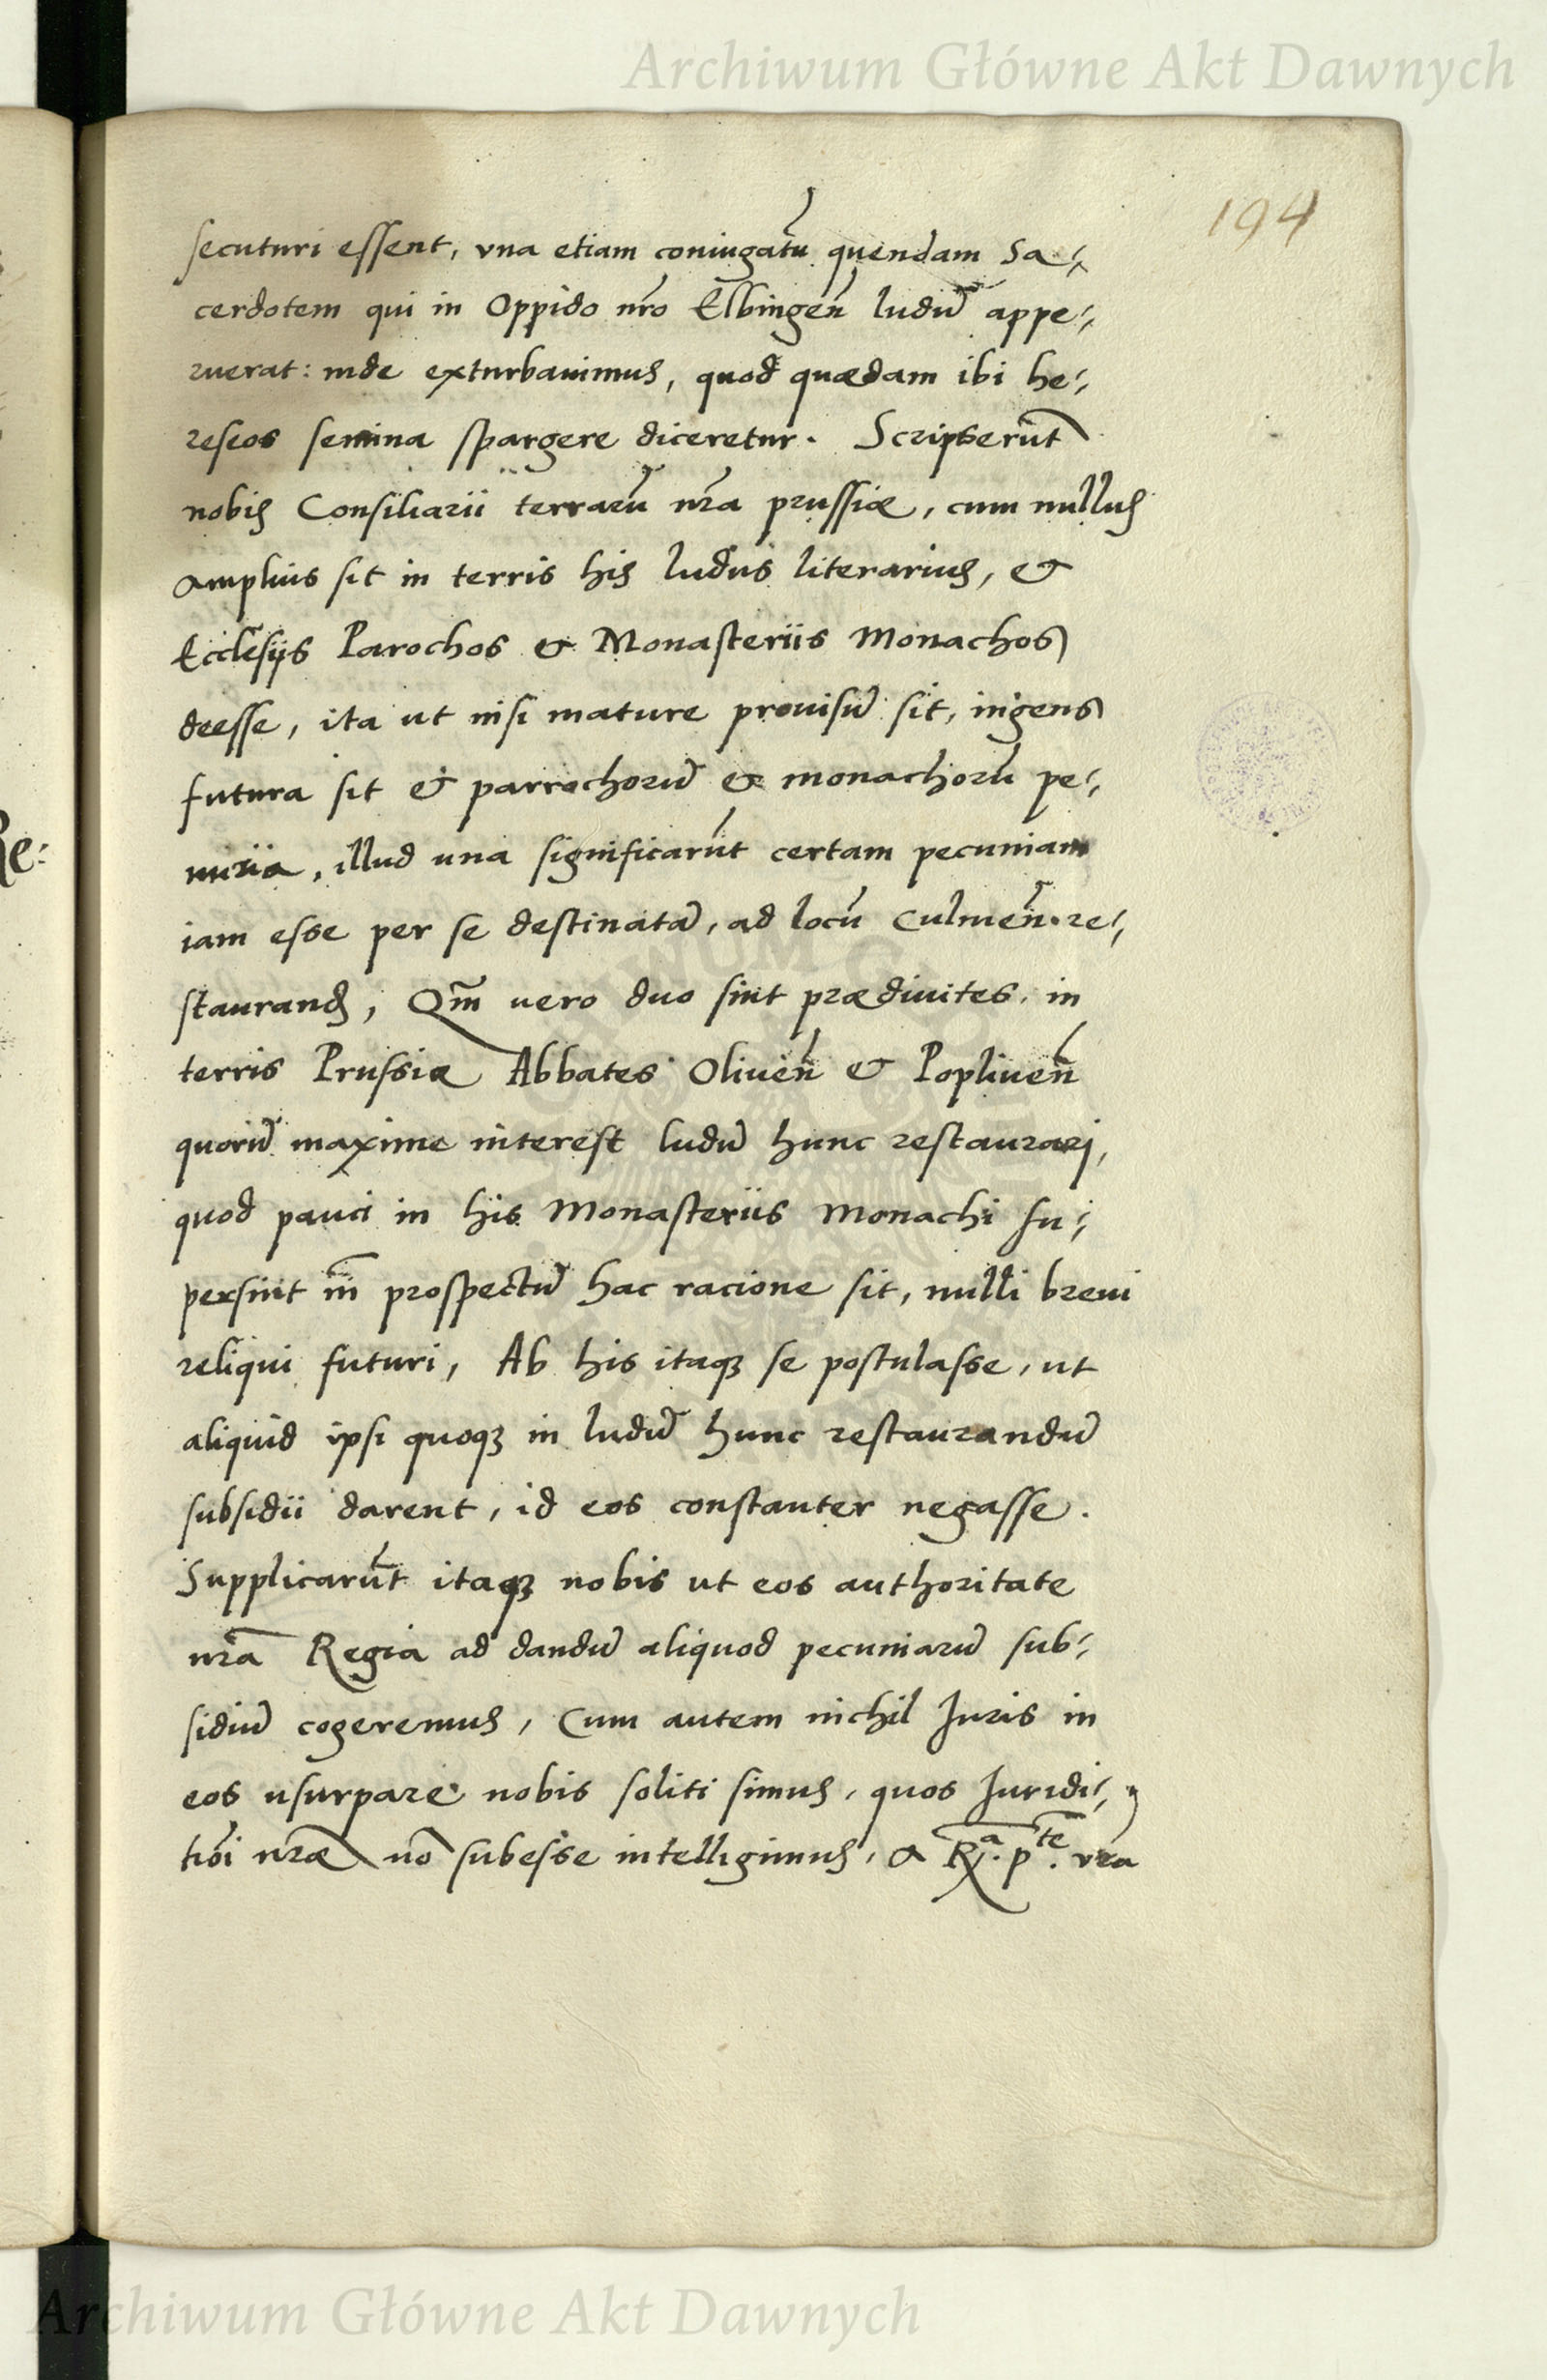 Archiwum Główne Akt Dawnych
194
secuturi essent, vna etiam coniugatū quendam Sa-
cerdotem qui in Oppido nr̄o Elbingen̄ ludū appe-
ruerat: inde exturbauimus, quod quædam ibi he-
reseos semina spargere diceretur. Scripserūt
nobis Consiliarii terrarū nr̄a prussiæ, cum nullus
amplius sit in terris his ludus literarius, &
Eccl̄esijs Parochos & Monasteriis Monachos
deesse, ita ut nisi mature prouisū sit, ingens
futura sit & parrochorū & monachorū pe-
nuria, illud una significarūt certam pecuniam
iam esse per se destinatā, ad locū Culmen̄. re-
staurand, Qm̄ vero duo sint prædiuites in
terris Prussiæ Abbates Oliuen̄ & Popliuen̄
quorū maxime interest ludū hunc restaurarj,
quod pauci in his Monasteriis Monachi su-
persint nī prospectū hac racione sit, nulli breui
reliqui futuri, Ab his itaqȝ se postulasse, ut
aliquid ipsi quoqȝ in ludū hunc restaurandū
subsidii darent, id eos constanter negasse.
Supplicarūt itaqȝ nobis ut eos authoritate
nr̄a Regia ad dandū aliquod pecuniarū sub-
sidiū cogeremus, Cum autem nichil Juris in
eos usurpare nobis soliti simus, quos Juridi-
tiōi nr̄æ nō subesse intelligimus, a R.ᵃ p.ᵗᵉ vr̄a
Re:
Archiwum Główne Akt Dawnych